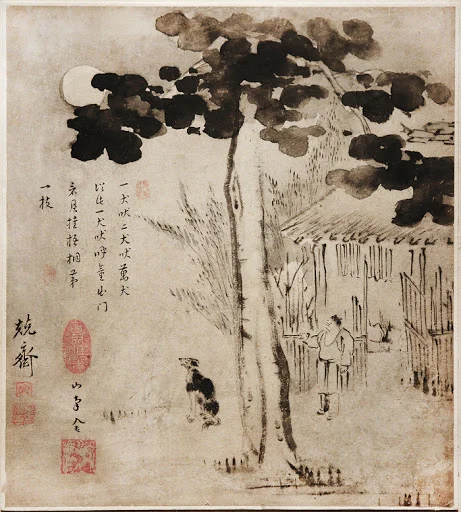 一犬吠二犬吠萬犬
從此一犬吠呼童出門
看月掛梧桐第
一枝
兢齋